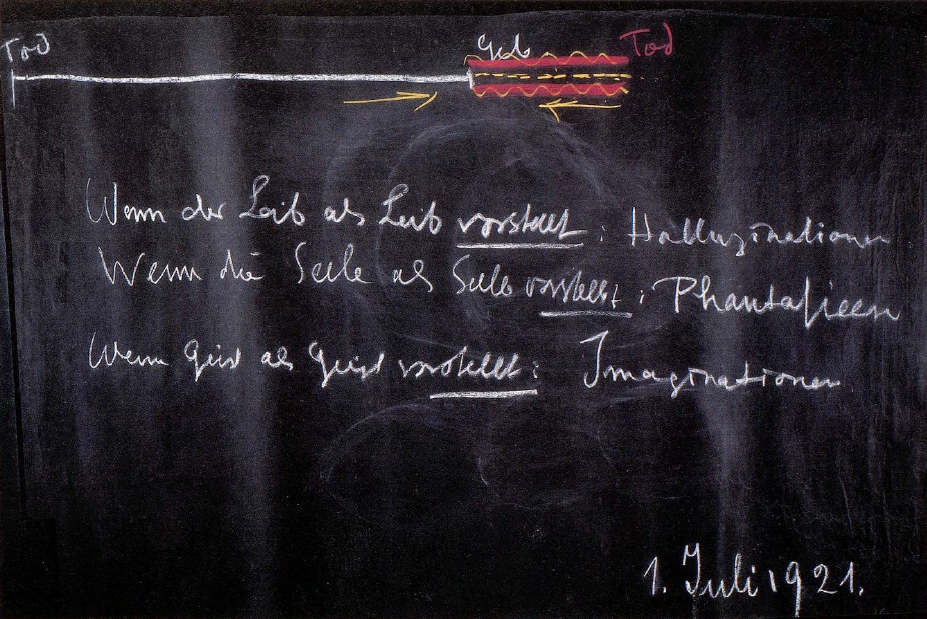 Tod Geb Tod
Wenn der Leib als Leib vorstellt : Halluzinationen
Wenn die Seele als Seele vorstellt : Phantasieen
Wenn Geist als Geist vorstellt : Imaginationen
1. Juli 1921.